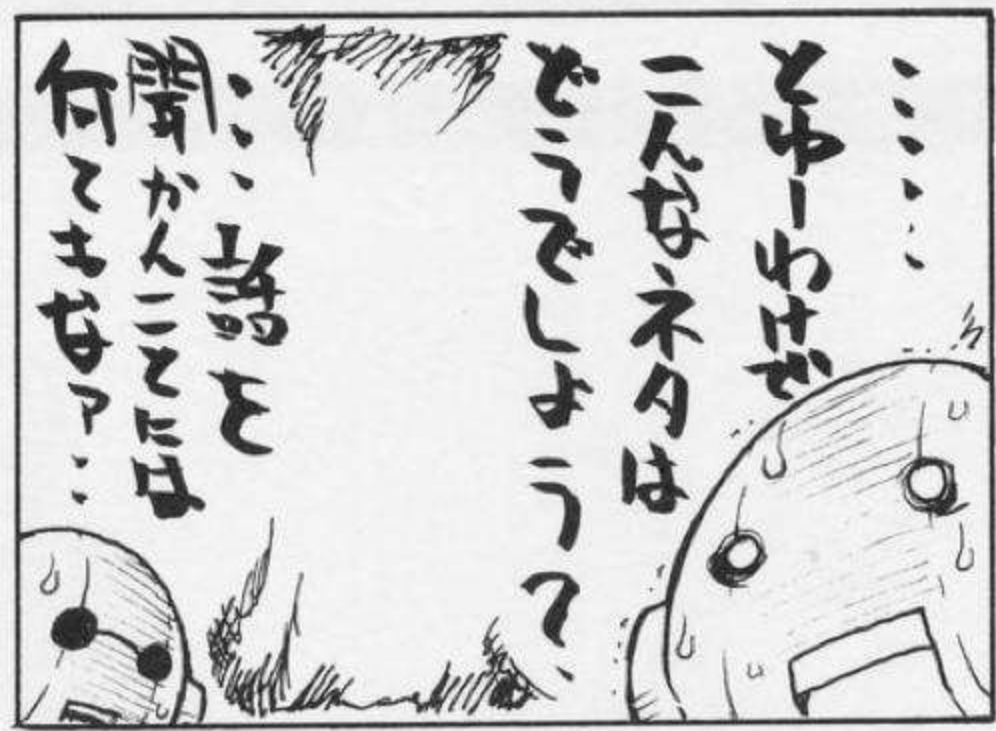 ‥‥‥
とゆーわけで
こんなネタは
どうでしょうて、
‥‥話を
聞かんことには
何てもなァ‥